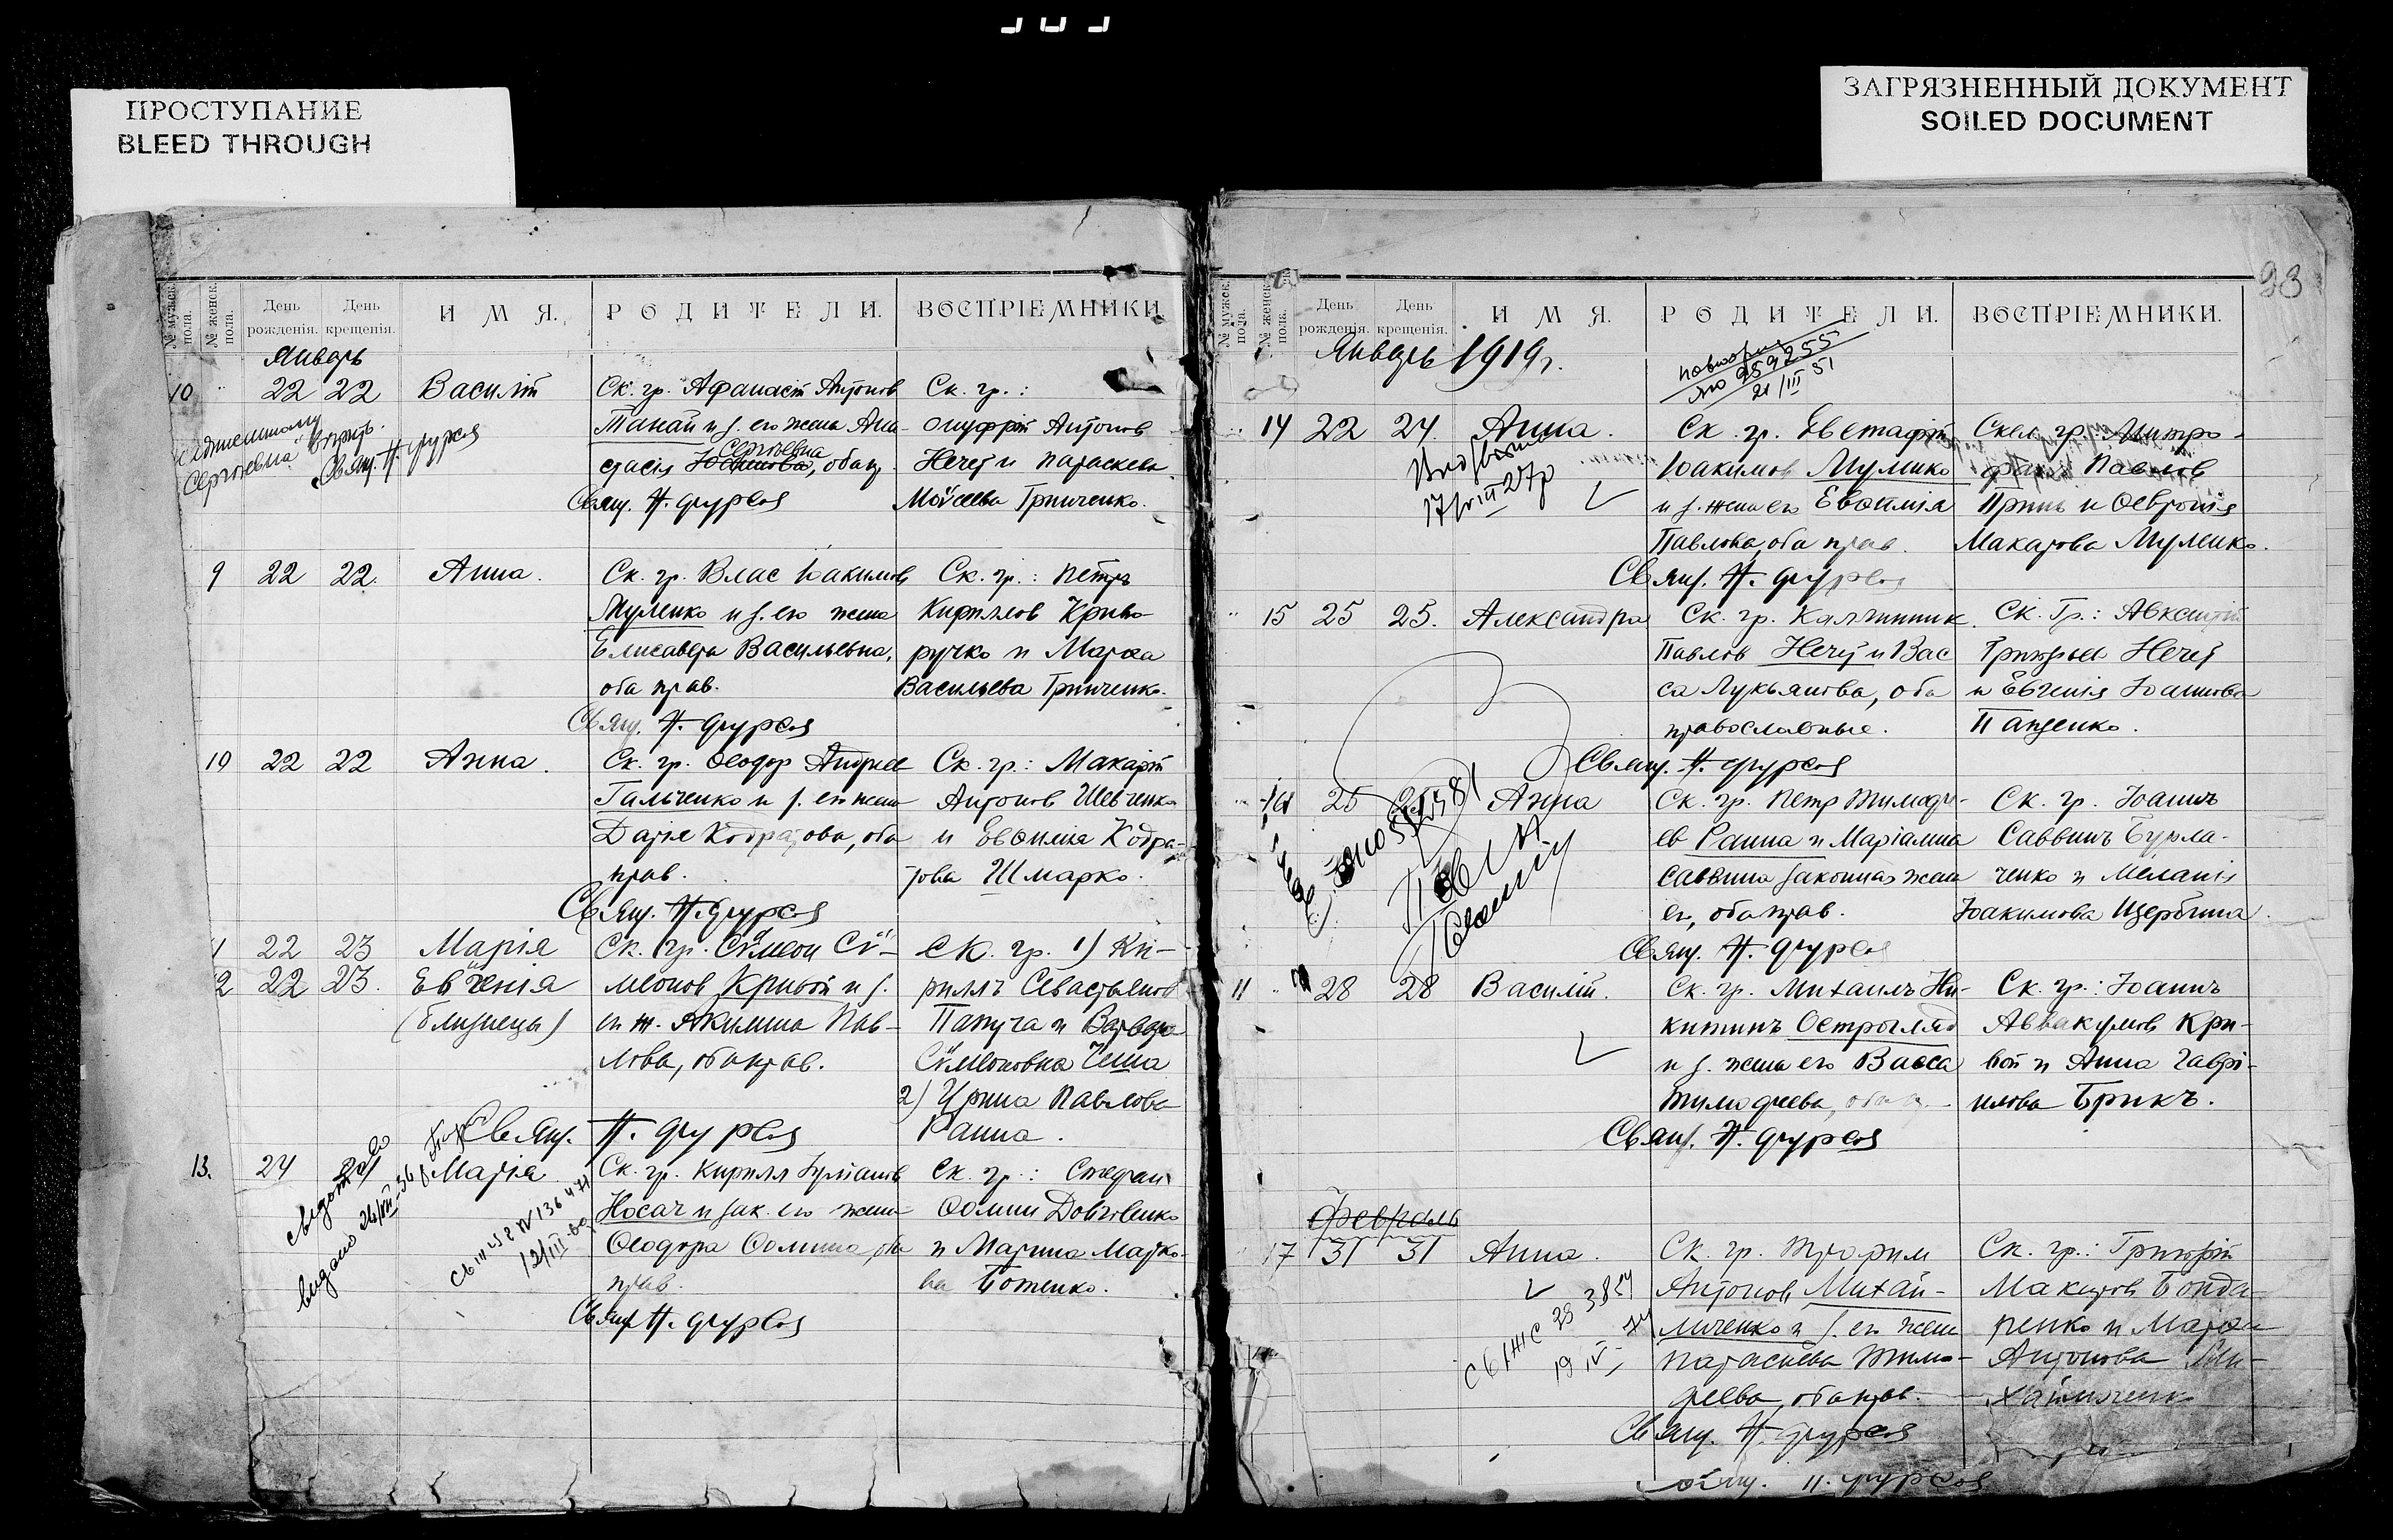 ПРОСТУПАНИЕ
BLEED THROUGH
ЗАГРЯЗНЕННЫЙ ДОКУМЕНТ
SOILED DOCUMENT
№ мужск. пола.
№ женск. пола.
День рожденія.
День крещенія.
ИМЯ.
РОДИТЕЛИ.
ВОСПРІЕМНИКИ
Январь
10 22 22 Василій
Ск. гр. Афанасій Антонов
Танай и з. его жена Ана-
Сергѣевна
стасія Іоаннова, оба пр
Свящ. Н. Фурсов
Ск. гр.:
Онуфрій Антонов
Нечет и Параскева
Моѵсеева Гринченко.
Сергѣевна" вѣрить.
Свящ. Н. Фурсов
9 22 22. Анна.
Ск. гр. Влас Іоакимов
Муленко и з. его жена
Елисавета Васильевна,
оба прав.
Свящ. Н. Фурсов
Ск. гр.: Петръ
Кириллов Криво
ручко и Марѳа
Васильева Гринченко.
10 22 22 Анна.
Ск. гр. Ѳеодор Андрее
Гальченко и з. его жена
Дарія Кодратова, оба
прав.
Свящ. Н. Фурсов
Ск. гр.: Макарій
Антонов Шевченко
и Евѳимія Кодра-
това Шмарко.
11 22 23 Марія
12 22 23. Евгенія
(близнецы)
Ск. гр. Сѵмеон Сѵ-
меонов Кривой и з.
ег ж. Акилина Пав-
лова, оба прав.
Свящ. Н. Фурсов
Ск. гр. 1) Ки-
риллъ Севастьянов
Папуча и Варвара
Сѵмеоновна
2) Ирина Павлова
Ранна.
13. 24 24 Марія
Ск. гр. Кирилл
Носач и зак. его жена
Ѳеодора Ѳомина, оба
прав.
Свящ. Н. Фурсов
Ск. гр.: Стефан
Ѳомин Довговенко
и Марина Марко-
ва Ботенко.
видано 26/VII 56
№ 136471
12/III-60
93
№ мужск. пола.
№ женск. пола.
День рожденія.
День крещенія.
ИМЯ.
РОДИТЕЛИ.
ВОСПРІЕМНИКИ.
Январь 1919 г.
повторн
№ 959255
21/III 51
14 22 24. Анна.
17/VIII 27р
Ск. гр. Евстафій
Іоакимов Муленко
и з. жена его Евѳимія
Павлова, оба прав.
Свящ. Н. Фурсов
Скел. гр. Митро-
фан Павлов
Принь и Февронія
Макарова Муленко.
15 25 25. Александра
Ск. гр. Каллиник
Павлов Нечет и Вас
са Лукьянова, оба
православные.
Свящ. Н. Фурсов
Ск. Гр.: Авксентій
Григорьев Нечет
и Евгенія Іоаннова
Панченко.
16 25 25 Анна
Ск. гр. Петр Тимофе-
ев Ранна и Маріамна
Саввина законная жена
его, оба прав.
Свящ. Н. Фурсов
Ск. гр. Іоаннъ
Саввинъ Бурла-
ченко и Меланія
Іоакимова Щербина.
11 28 28 Василій.
Ск. гр. Михаилъ Ни-
китинъ Остроглядъ
и з. жена его Васса
Тимофеева, оба п
Свящ. Н. Фурсов
Ск. гр.: Іоаннъ
Аввакумов Кри-
вой и Анна Гаврі-
илова Брикъ.
Февраль
17 31 31 Анна.
Ск. гр. Трофим
Антонов Михай-
личенко и з. его жена
Параскева Тимо-
феева, оба прав.
Свящ. Н. Фурсов
Ск. гр.: Григорій
Макаров Бонда-
ренко и Марѳа
Антонова Ми-
хайличенко
Свящ. Н. Фурсов